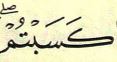 كَسَبْتُمْ ۖ